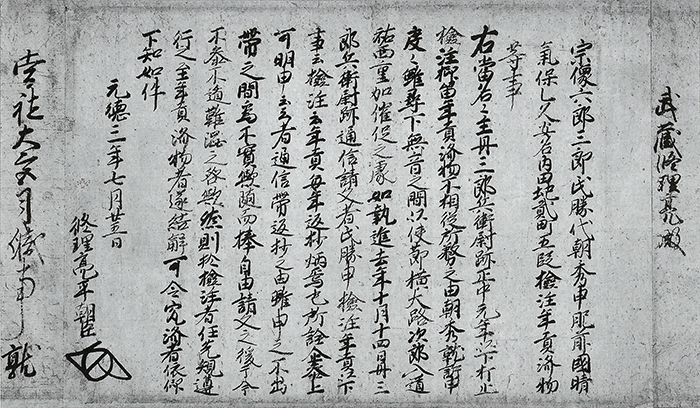 武藏修理亮殿
宗像六郎三郎氏勝代朝秀申肥前國晴
氣保乙久安名内田地貳町五段檢注年貢濟物
等事
右當名々主丹三郎兵衛尉跡正中元年以下打止
檢注抑留年貢濟物不相從所務之由朝秀就訴申
度々雖尋下無音之間以使節横大路次郎入道
祐西重加催促之處如執進去年十月十四日丹三
郎兵衛尉跡通信請文者氏勝申檢注年貢以下
事云檢注云年貢毎年返抄炳焉也所詮企參上
可明申云々者通信帶返抄之由雖申之不出
帶之間為不實歟随而捧自由請文之後于今
不參不遁難澁之咎歟然則於檢注者任先規遵
行之至年貢濟物者遂結解可令究濟者依仰
下知如件
元德二年七月廿五日
修理亮平朝臣
社大宮司